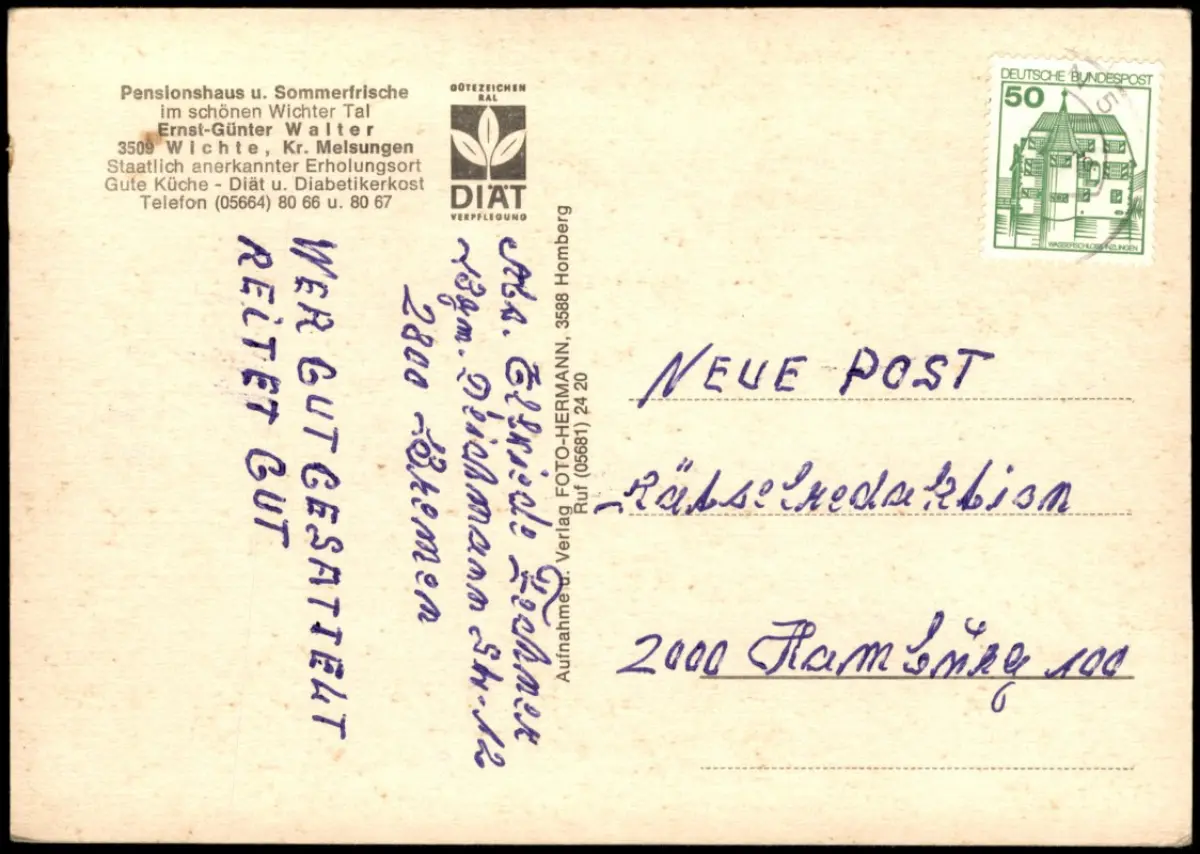 Pensionshaus u. Sommerfrische
im schönen Wichter Tal
Ernst-Günter Walter
3509 Wichte, Kr. Melsungen
Staatlich anerkannter Erholungsort
Gute Küche - Diät u. Diabetikerkost
Telefon (05664) 80 66 u. 80 67
GÜTEZEICHEN
RAL
DIÄT
VERPFLEGUNG
DEUTSCHE BUNDESPOST
50
WASSERSCHLOSS INZLINGEN
Abs. Elfriede
Bgm. Deichmann Str. 12
2800 Bremen
WER GUT GESATTELT
REITET GUT
Aufnahme u. Verlag FOTO-HERMANN, 3588 Homberg
Ruf (05681) 24 20
NEUE POST
Rätselredaktion
2000 Hamburg 100